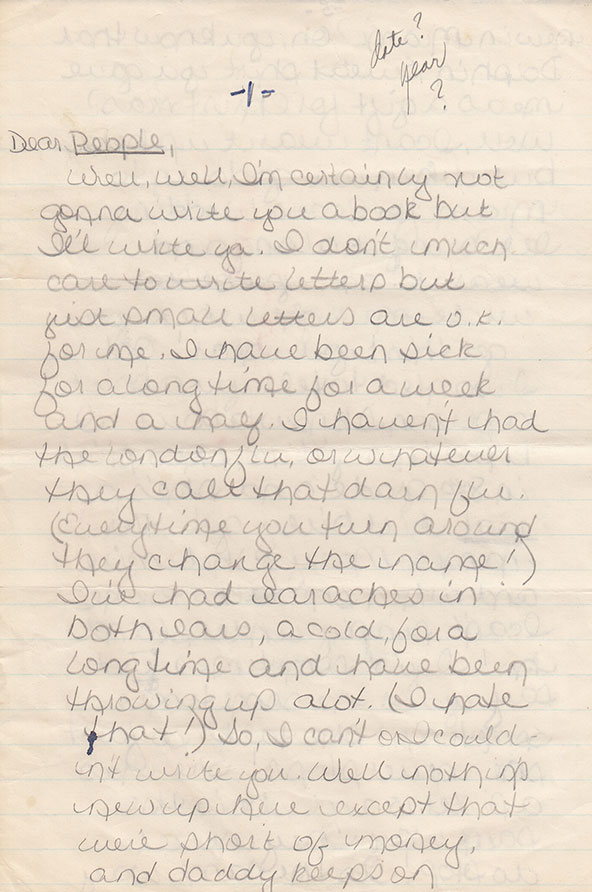 date?
year
?
-1-
Dear People,
Well, well, I'm certainly not
gonna write you a book but
I'll write ya. I don't much
care to write letters but
just small letters are o.k.
for me. I have been sick
for a long time for a week
and a half. I haven't had
the london flu, or whatever
they call that darn flu.
(Everytime you turn around
they change the name!)
I've had earaches in
both ears, a cold, for a
long time and have been
throwing up alot. (I hate
that!) So, I can't or I could-
n't write you. Well nothing
new up here except that
we're short of money,
and daddy keeps on